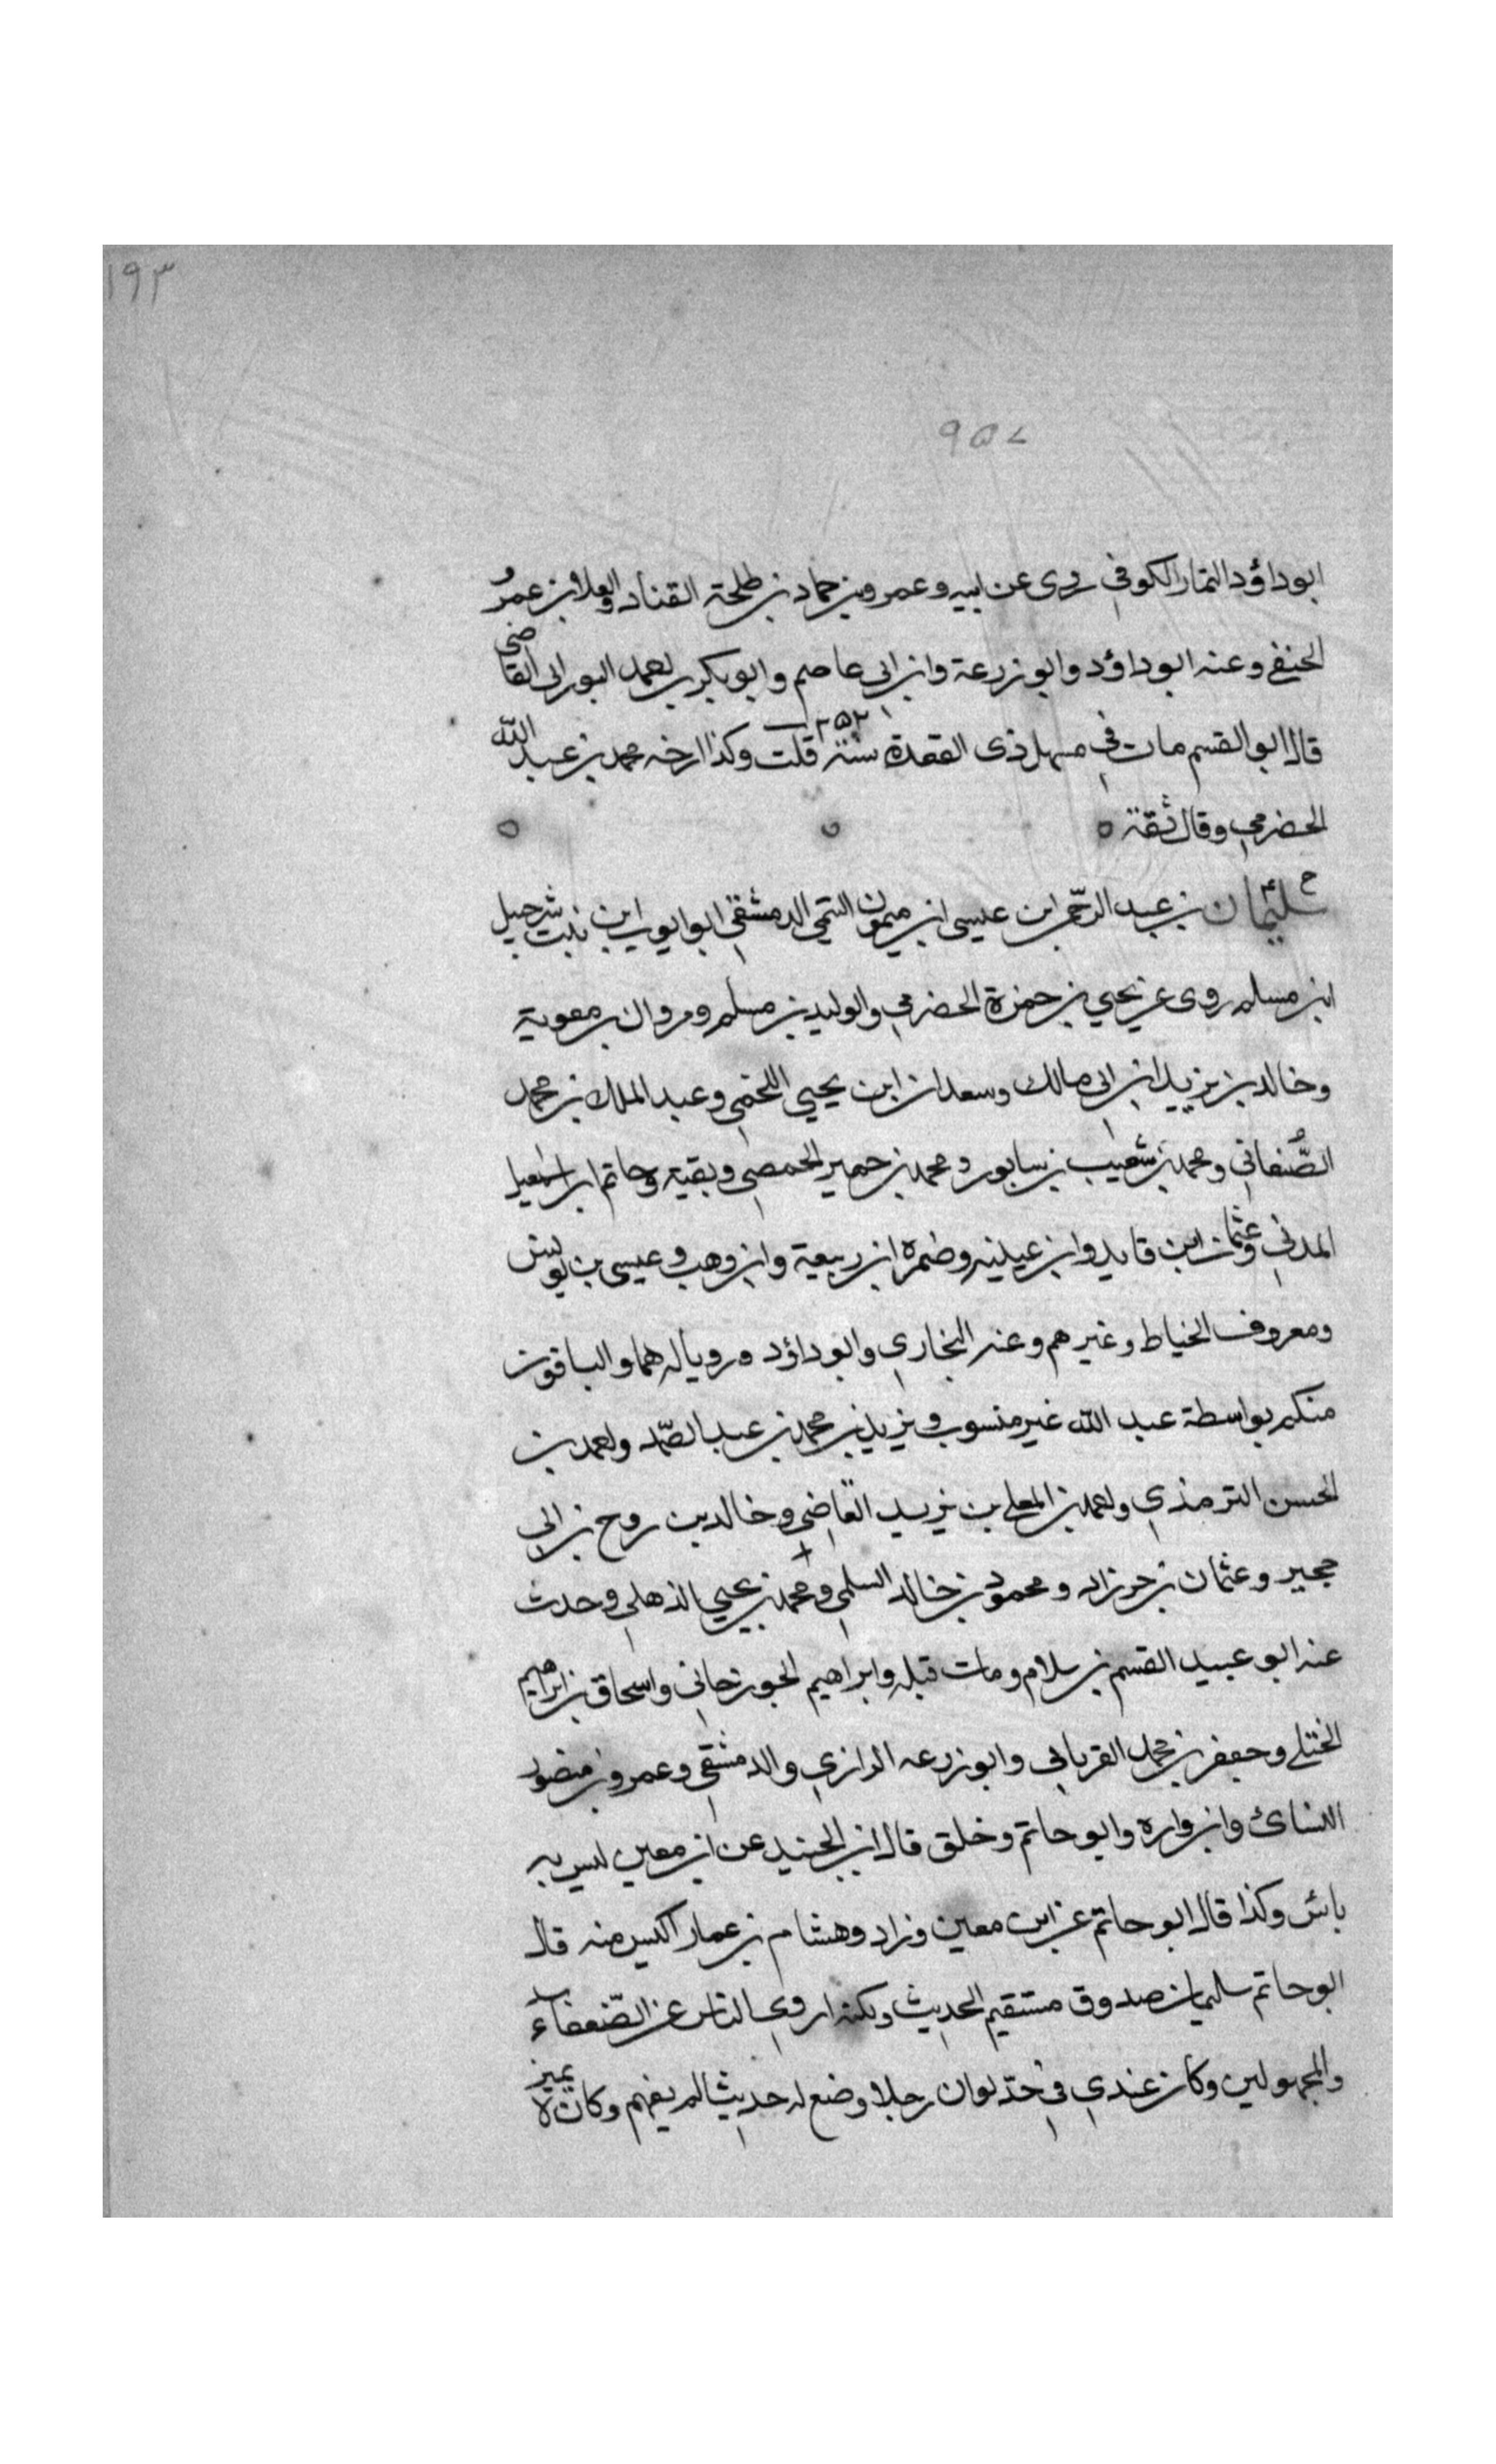 ١٩٣
٩٥٧
ابوداؤد التمار الكوفي روى عن ابيه وعمرو بن حماد بن طلحة القناد والعلا بن عمرو
الحنفي وعنه ابوداؤد وابو زرعة وابن ابي عاصم وابوبكر بن احمد البوراني القاضي
قال ابو القسم مات في مستهل ذي القعدة سنة ٢٥٢ قلت وكذا ارخه محمد بن عبد الله
الحضرمي وقال ثقة ٥ ٥ ٥
سليمان بن عبد الرحمن ابن عيسى ابن ميمون التيمي الدمشقي ابو ايوب ابن بنت شرحبيل
ابن مسلم روى عن يحيي بن حمزة الحضرمي والوليد بن مسلم ومروان بن معوية
وخالد بن يزيد ابن ابي مالك وسعدان ابن يحيي اللخمي وعبد الملك بن محمد
الصنعاني ومحمد بن شعيب بن سابور ومحمد بن حمير الحمصي وبقية وحاتم ابن اسمعيل
المدني وعثمان ابن فايد وابن عيينه وضمرة ابن ربيعة وابن وهب وعيسى بن يونس
ومعروف الخياط وغيرهم وعنه البخاري وابوداؤد ورويا له هما والباقون
منكم بواسطة عبد الله غير منسوب ويزيد بن محمد بن عبد الصمد واحمد بن
الحسن الترمذي واحمد بن المعلى بن يزيد القاضي وخالد بن روح بن ابي
حجير وعثمان بن خرزاد ومحمود بن خالد السلمي ومحمد بن يحيي الذهلي وحدث
عنه ابو عبيد القسم بن سلام ومات قبله وابراهيم الجوزجاني واسحاق بن ابراهيم
الختلي وجعفر بن محمد الفريابي وابو زرعه الرازي والدمشقي وعمرو بن منصور
النسائ وابن واره وابو حاتم وخلق قال ابن الجنيد عن ابن معين ليس به
بائس وكذا قال ابو حاتم عن ابن معين وزاد وهشام بن عمار اكيس منه قال
ابو حاتم سليمان صدوق مستقيم الحديث ولكنه اروى الناس عن الضعفاء
والمجهولين وكان عندي في حد لو ان رجلا وضع له حديثا لم يفهم وكان لا يميز